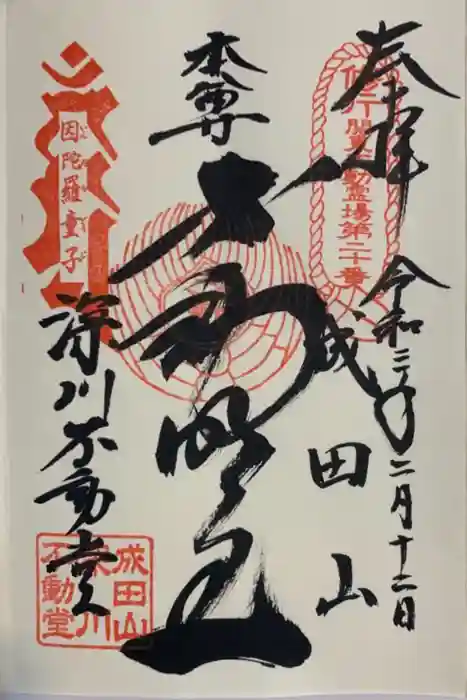 奉拝
令和三年二月十二日
修行
関東不動霊場第二十番
成田山
本尊
不動明王
因陀羅童子
深川不動堂
成田山
深川
不動堂